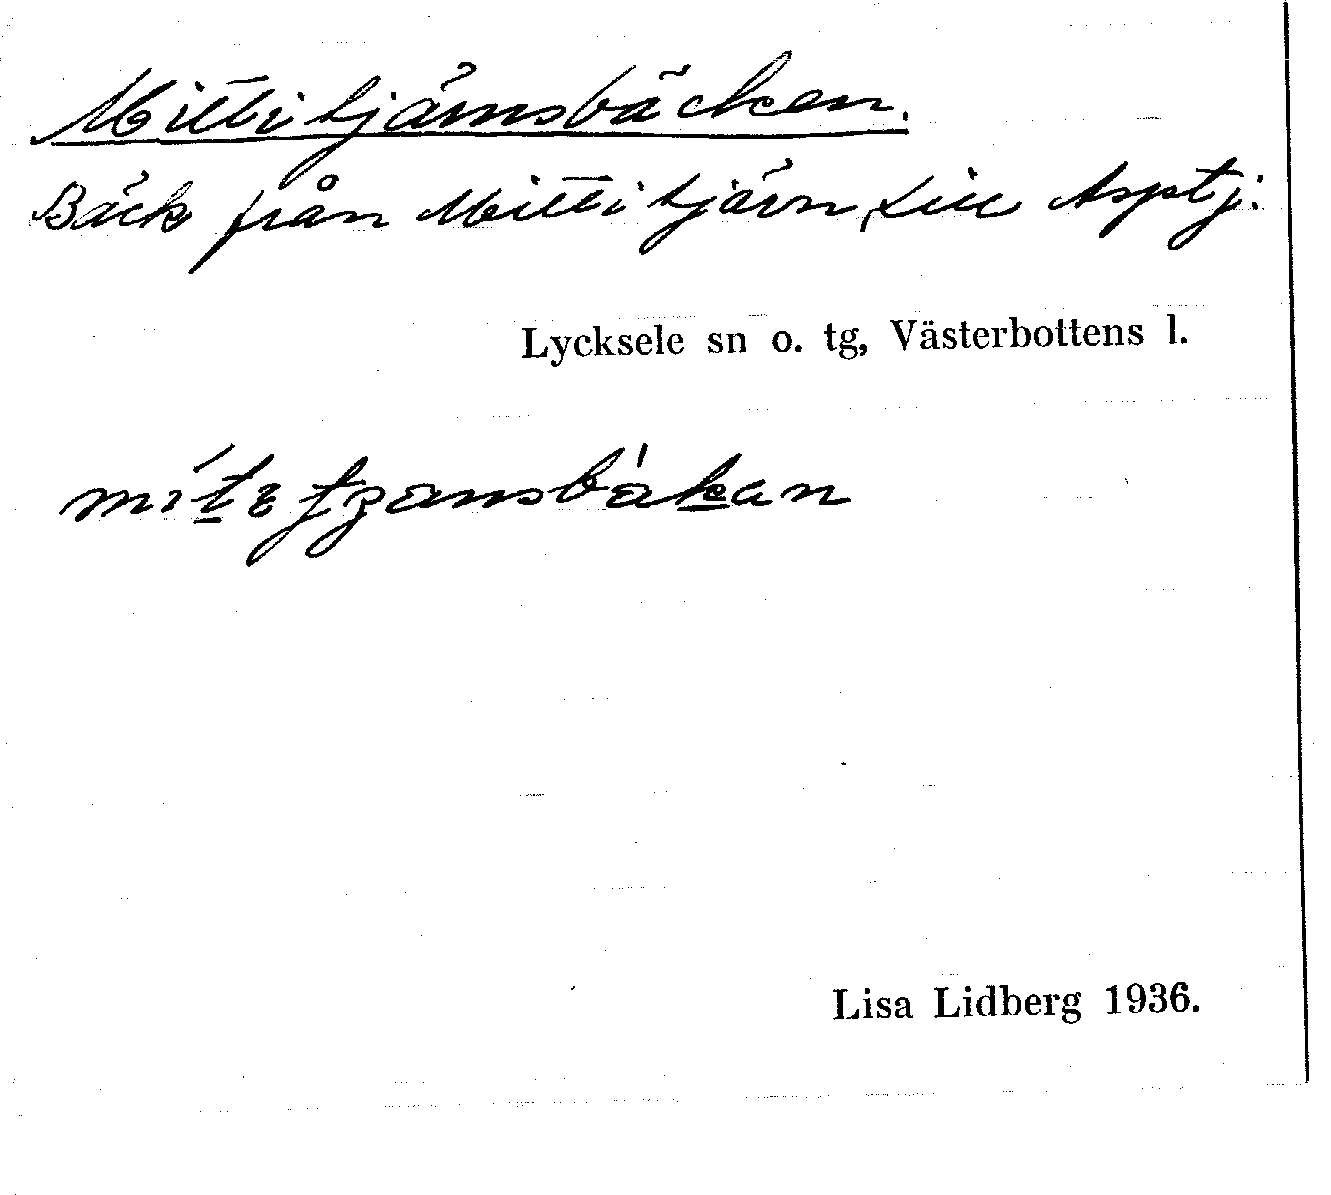 Mittitjärnsbäcken.
Bäck från Mittitjärn, till Asptj.
Lycksele sn o. tg, Västerbottens l.
Lisa Lidberg 1936.